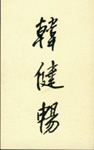 韓健暢